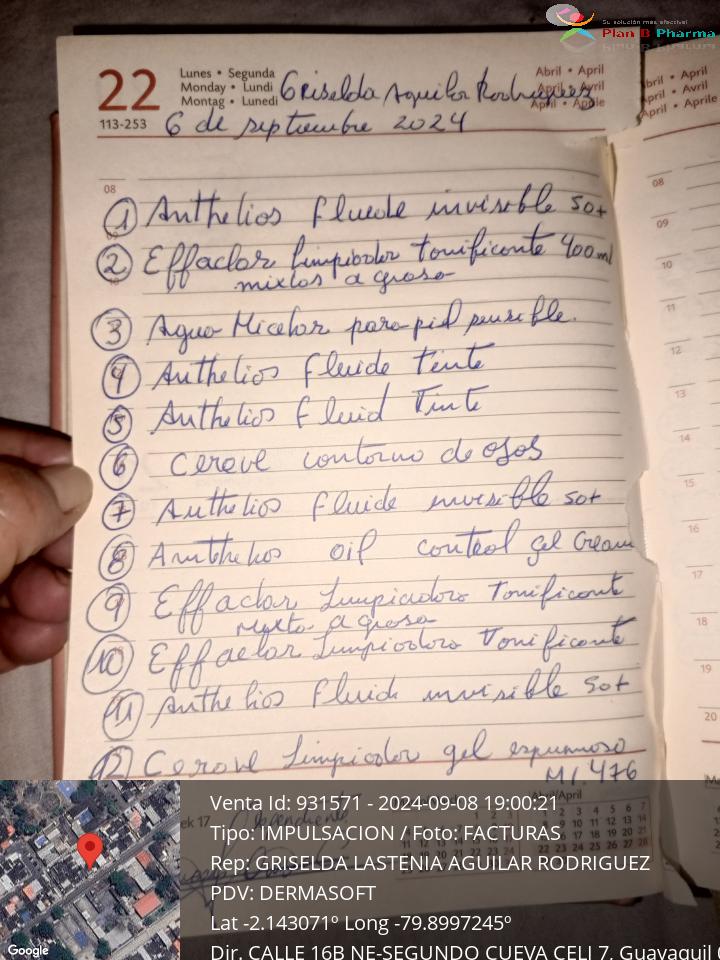 Su solución más efectiva!
Plan B Pharma
22
Lunes • Segunda
Monday • Lundi
Montag • Lunedi
113-253
Abril • April
April • Avril
April • Aprile
Griselda Aguilar Rodriguez
6 de septiembre 2024
Abril • April
April • Avril
April • Aprile
08
① Anthelios fluide invisible 50+
② Effaclar limpiador tonificante 400 ml
mixtas a grasa
③ Agua Micelar para piel sensible.
④ Anthelios fluide tinte
⑤ Anthelios fluid Tinte
⑥ Cerave contorno de ojos
⑦ Anthelios fluide invisible 50+
⑧ Anthelios oil control gel Cream
⑨ Effaclar Limpiadora Tonificante
mixta a grasa
⑩ Effaclar Limpiadora Tonificante
⑪ Anthelios fluid invisible 50+
⑫ Cerave Limpiador gel espumoso
Ml. 476
08
09
10
11
12
13
14
15
16
17
18
19
20
Week 17
Dependiente
Abril/April
Venta Id: 931571 - 2024-09-08 19:00:21
Tipo: IMPULSACION / Foto: FACTURAS
Rep: GRISELDA LASTENIA AGUILAR RODRIGUEZ
PDV: DERMASOFT
Lat -2.143071º Long -79.8997245º
Dir. CALLE 16B NE-SEGUNDO CUEVA CELI 7, Guayaquil
Google